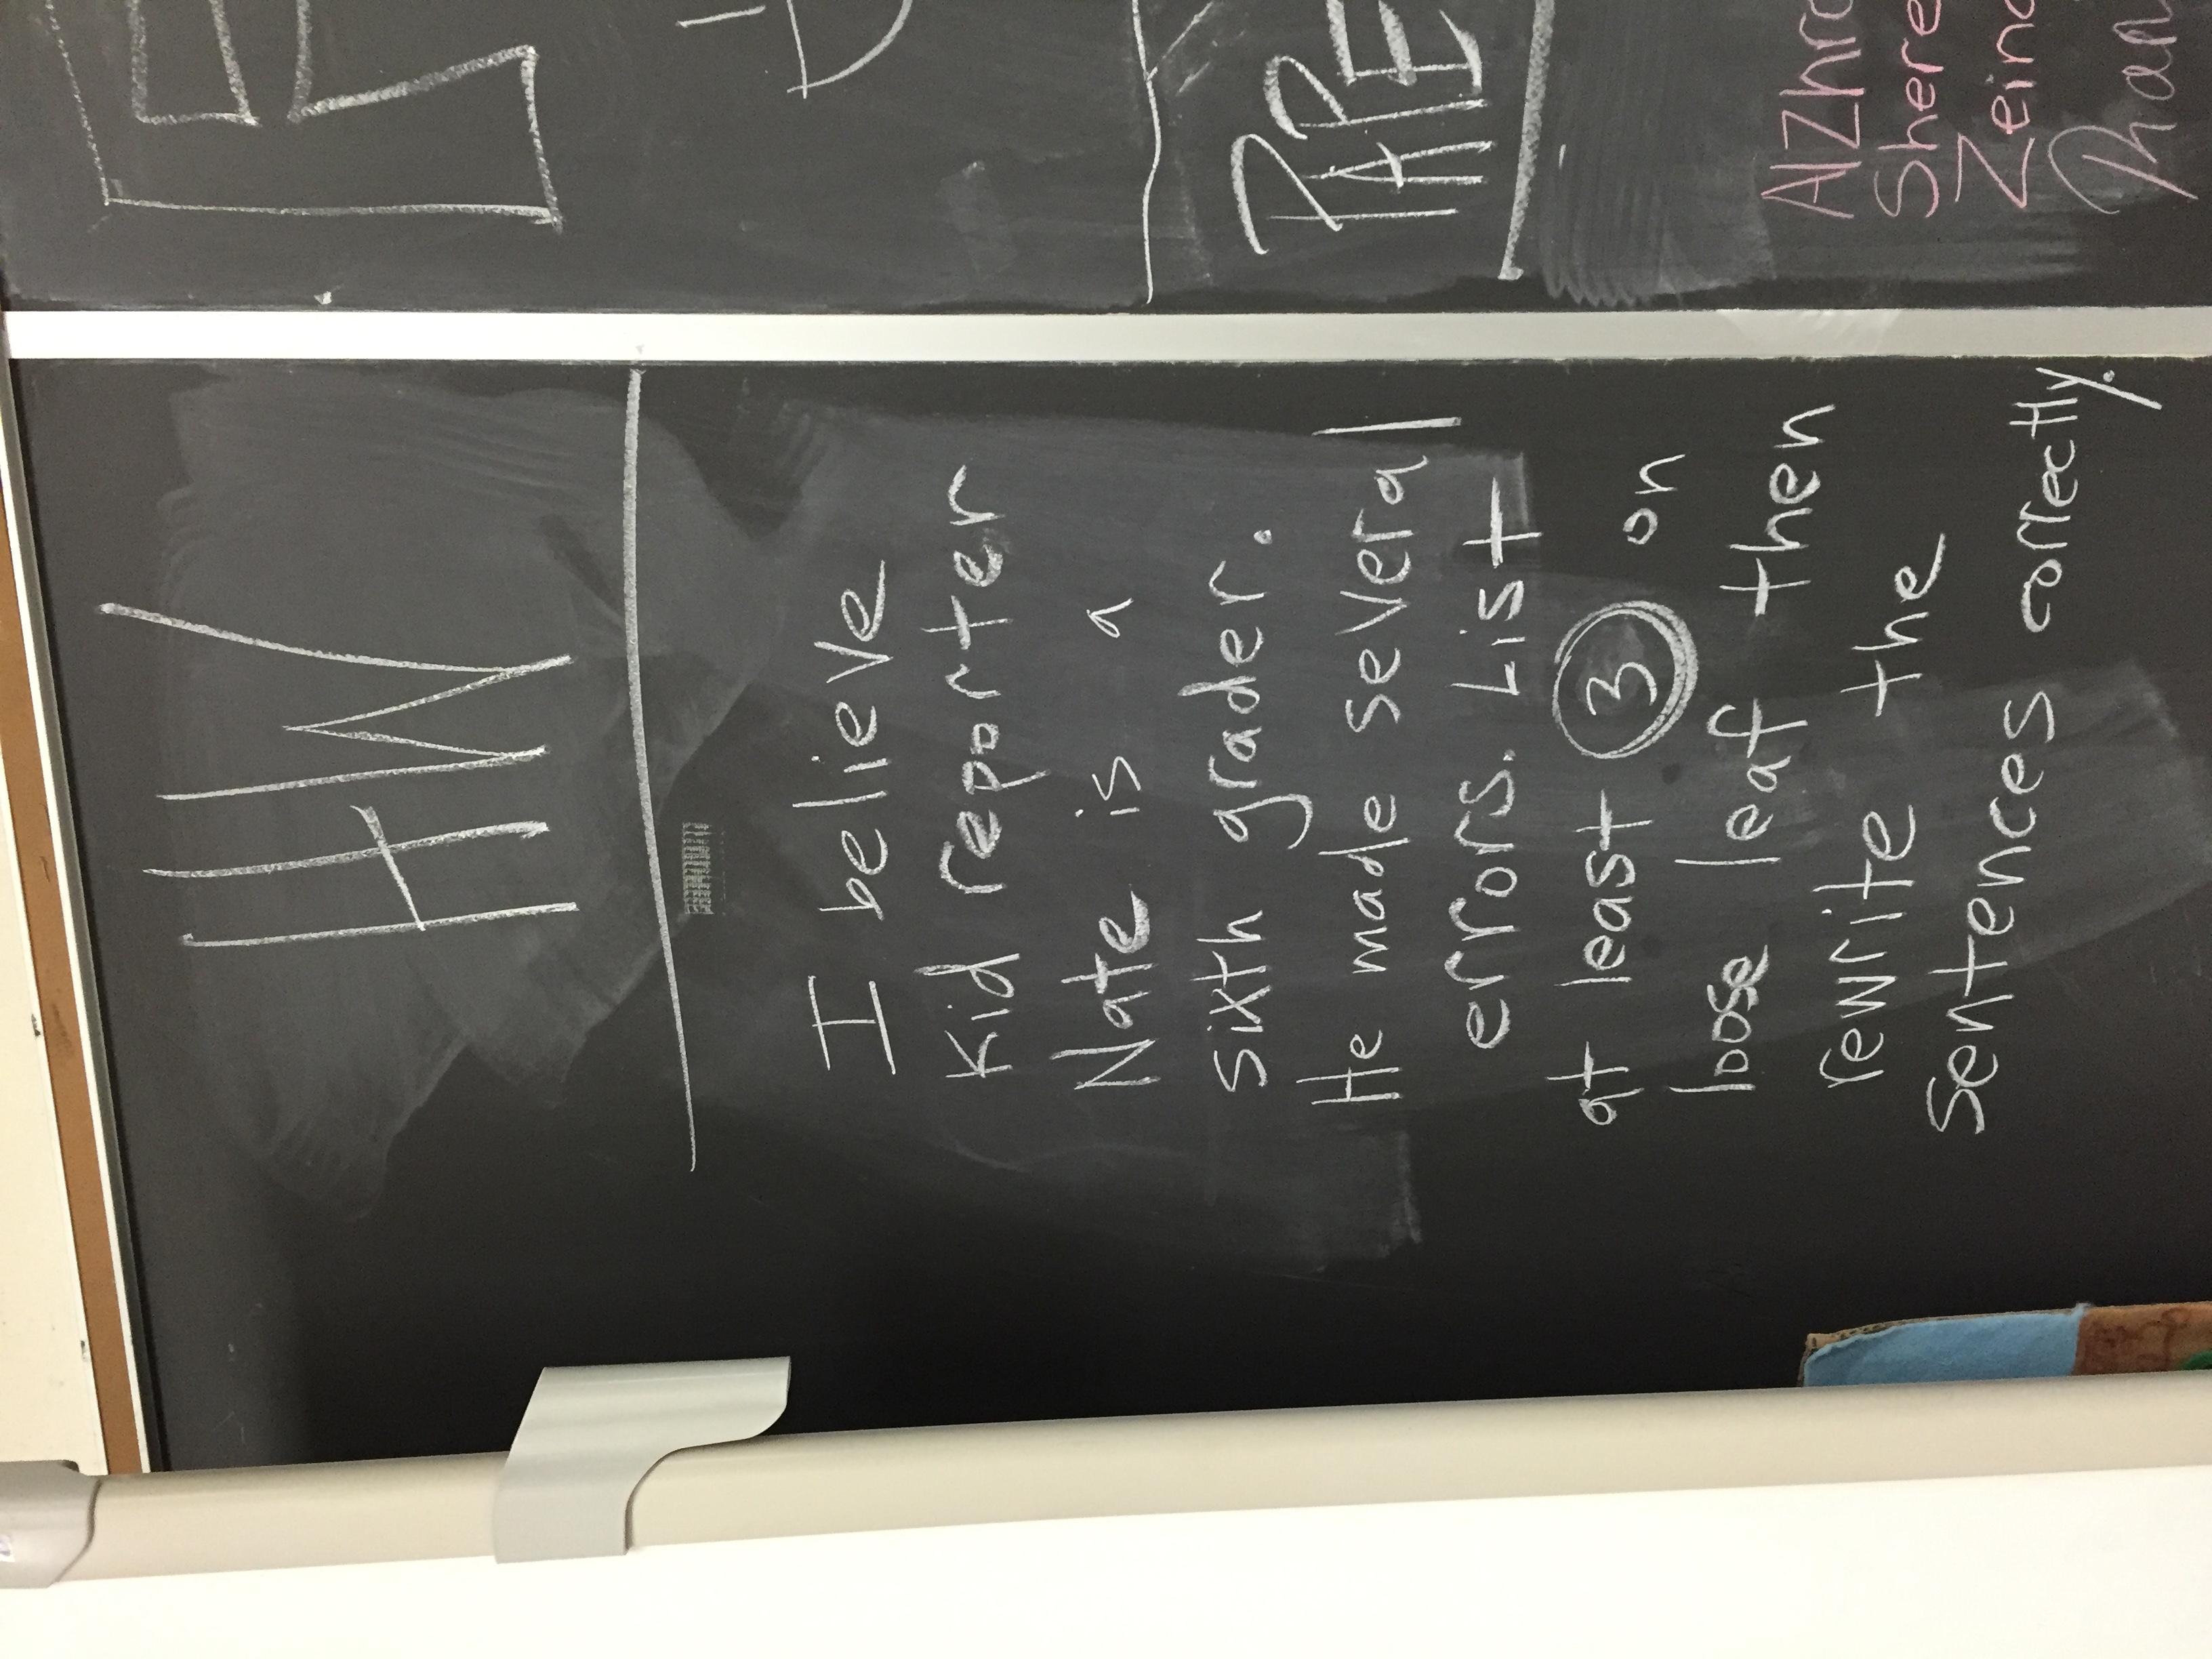 HW
I believe
Kid reporter
Nate is a
sixth grader.
He made several
errors. List
at least 3 on
loose leaf then
rewrite the
Sentences correctly.